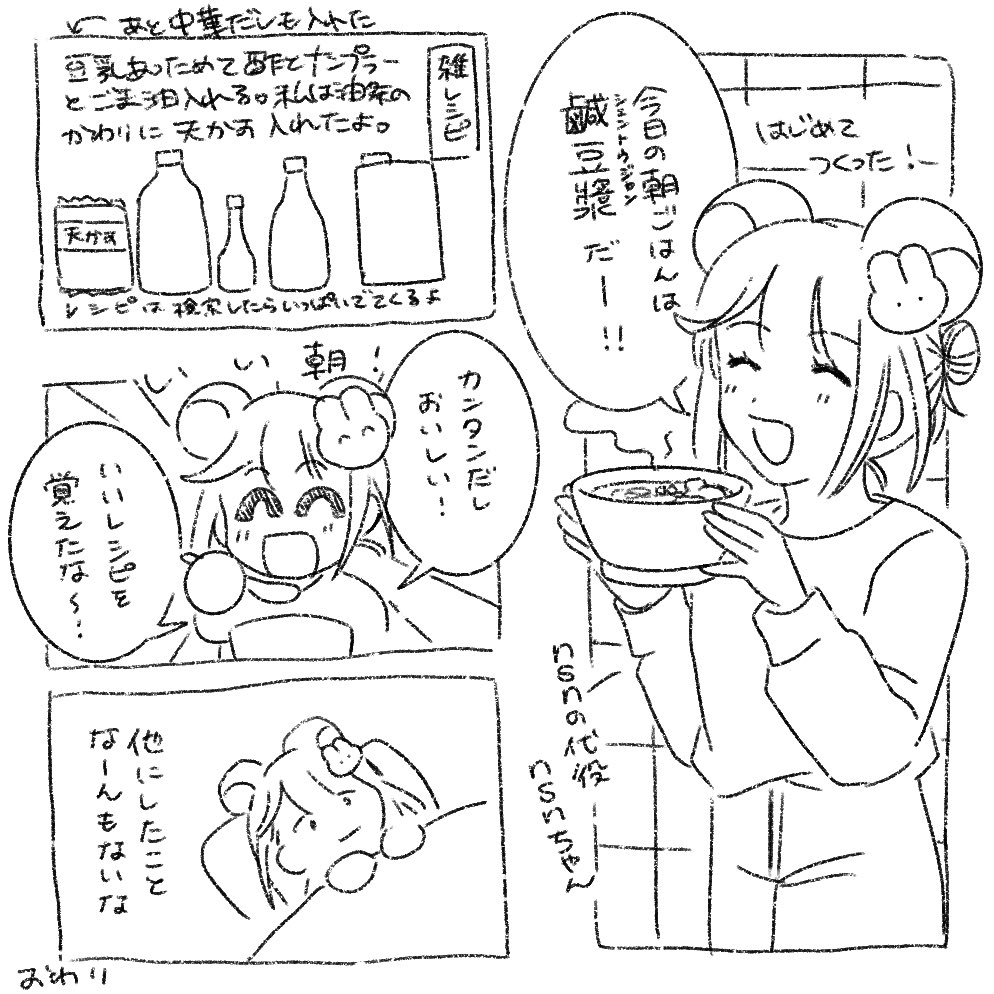 はじめて
つくった！
今日の朝ごはんは
鹹豆漿だー!!
シェントウジャン
nsnの代役
nsnちゃん
←あと中華だしも入れた
雑レシピ
豆乳あっためて酢とナンプラー
とごま油入れる。私は油条の
かわりに天かす入れたよ。
天かす
レシピは検索したらいっぱいでてくるよ
いい朝！
カンタンだし
おいしい！
いいレシピを
覚えたな〜！
他にしたこと
なーんもないな
おわり